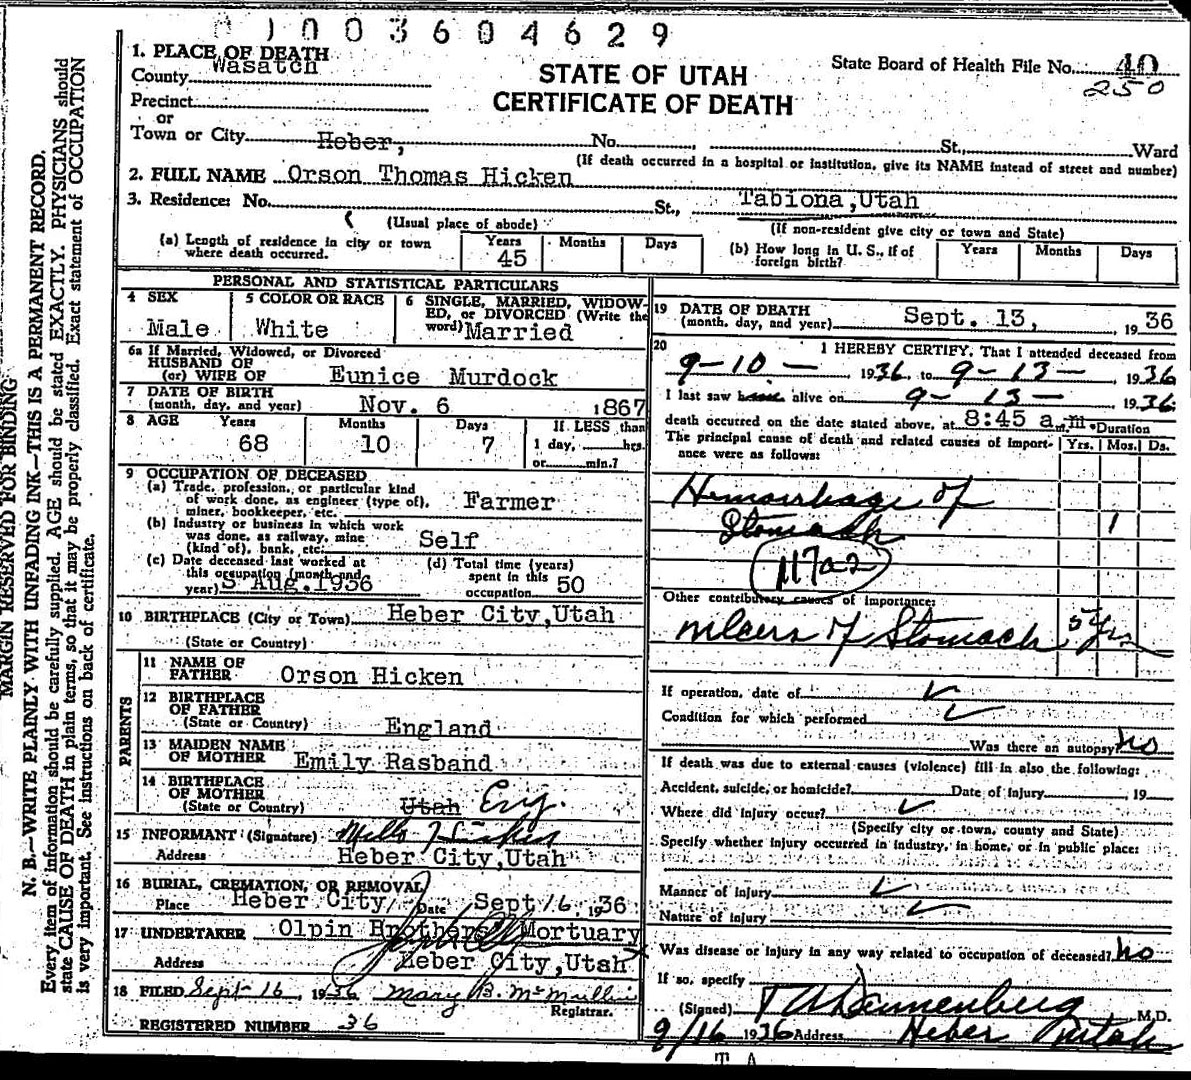 0 1 0 0 3 6 0 4 6 2 9
MARGIN RESERVED FOR BINDING
N. B.—WRITE PLAINLY WITH UNFADING INK—THIS IS A PERMANENT RECORD.
Every item of information should be carefully supplied. AGE should be stated EXACTLY. PHYSICIANS should
state CAUSE OF DEATH in plain terms, so that it may be properly classified. Exact statement of OCCUPATION
is very important. See instructions on back of certificate.
STATE OF UTAH
CERTIFICATE OF DEATH
State Board of Health File No. 40
250
1. PLACE OF DEATH
County Wasatch
Precinct
or
Town or City Heber, No. St., Ward
(If death occurred in a hospital or institution, give its NAME instead of street and number)
2. FULL NAME Orson Thomas Hicken
3. Residence: No. St., Tabiona,Utah
(Usual place of abode) (If non-resident give city or town and State)
(a) Length of residence in city or town where death occurred. Years 45 Months Days
(b) How long in U. S., if of foreign birth? Years Months Days
PERSONAL AND STATISTICAL PARTICULARS
4 SEX Male
5 COLOR OR RACE White
6 SINGLE, MARRIED, WIDOWED, or DIVORCED (Write the word) Married
6a If Married, Widowed, or Divorced
HUSBAND OF
(or) WIFE OF Eunice Murdock
7 DATE OF BIRTH
(month, day, and year) Nov. 6 1867
8 AGE Years 68 Months 10 Days 7 If LESS than 1 day, hrs. or min.?
9 OCCUPATION OF DECEASED
(a) Trade, profession, or particular kind of work done, as engineer (type of), miner, bookkeeper, etc. Farmer
(b) Industry or business in which work was done, as railway, mine (kind of), bank, etc. Self
(c) Date deceased last worked at this occupation (month and year) Aug. 1936
(d) Total time (years) spent in this occupation 50
10 BIRTHPLACE (City or Town) Heber City,Utah
(State or Country)
PARENTS
11 NAME OF FATHER Orson Hicken
12 BIRTHPLACE OF FATHER
(State or Country) England
13 MAIDEN NAME OF MOTHER Emily Rasband
14 BIRTHPLACE OF MOTHER
(State or Country) Utah Eng.
15 INFORMANT (Signature) Hicken
Address Heber City,Utah
16 BURIAL, CREMATION, OR REMOVAL
Place Heber City Date Sept 16, 1936
17 UNDERTAKER Olpin Brothers Mortuary
Address Heber City,Utah
18 FILED Sept 16, 1936 Mary B. McMullin
Registrar.
REGISTERED NUMBER 36
19 DATE OF DEATH
(month, day, and year) Sept. 13, 1936
20 I HEREBY CERTIFY, That I attended deceased from
9-10- 1936, to 9-13-, 1936
I last saw him alive on 9-13- 1936
death occurred on the date stated above, at 8:45 a.m. Duration
The principal cause of death and related causes of importance were as follows: Yrs. Mos. Ds.
Hemorrhage of
Stomach 1
117a2
Other contributory causes of importance:
ulcers of Stomach 5 yrs
If operation, date of
Condition for which performed
Was there an autopsy no
If death was due to external causes (violence) fill in also the following:
Accident, suicide, or homicide? Date of injury 19
Where did injury occur?
(Specify city or town, county and State)
Specify whether injury occurred in industry, in home, or in public place:
Manner of injury
Nature of injury
Was disease or injury in any way related to occupation of deceased? no
If so, specify
(Signed) Dannenberg M.D.
9/16 1936 Address Heber Utah
T A